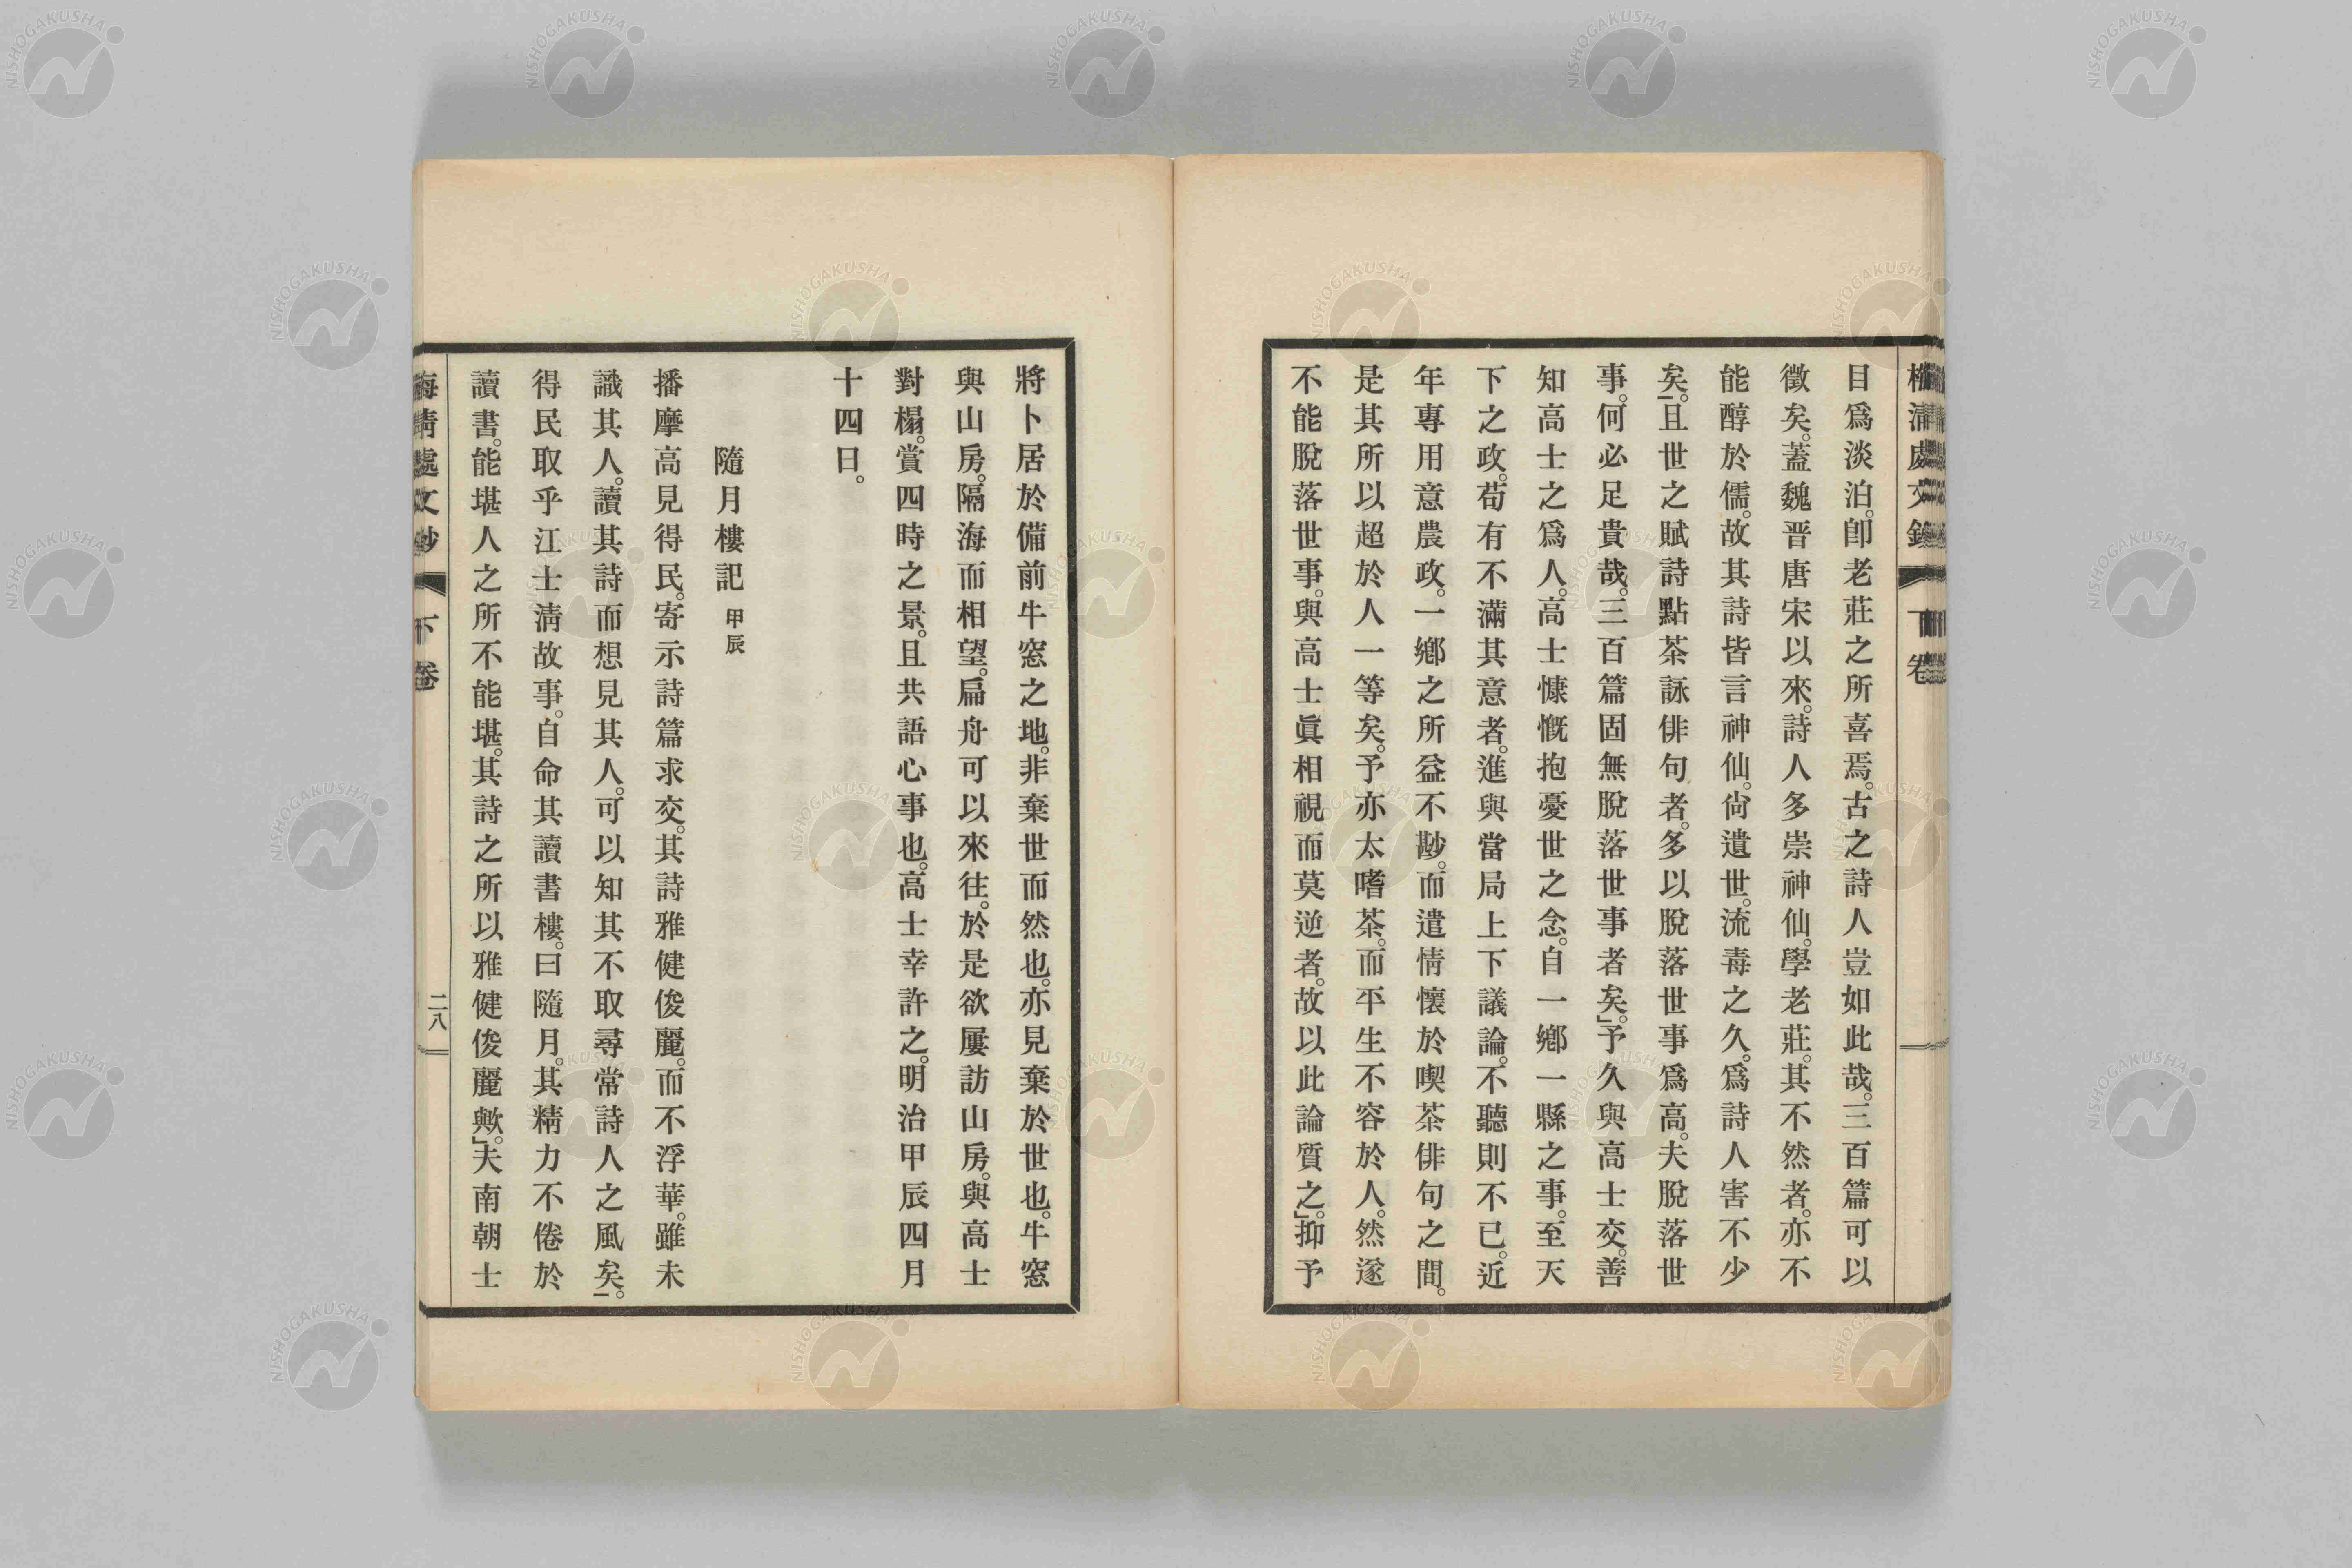 目爲淡泊。卽老莊之所喜焉。古之詩人豈如此哉。三百篇可以
徵矣。蓋魏晋唐宋以來。詩人多崇神仙。學老莊。其不然者。亦不
能醇於儒。故其詩皆言神仙。尙遺世。流毒之久。爲詩人害不少
矣。」且世之賦詩點茶詠俳句者。多以脫落世事爲高。夫脫落世
事。何必足貴哉。三百篇固無脫落世事者矣。」予久與高士交。善
知高士之爲人。高士慷慨抱憂世之念。自一鄕一縣之事。至天
下之政。苟有不滿其意者。進與當局上下議論。不聽則不已。近
年專用意農政。一鄕之所益不尠。而遣情懷於喫茶俳句之間。
是其所以超於人一等矣。予亦太嗜茶。而平生不容於人。然遂
不能脫落世事。與高士眞相視而莫逆者。故以此論質之。」抑予
將卜居於備前牛窓之地。非棄世而然也。亦見棄於世也。牛窓
與山房。隔海而相望。扁舟可以來往。於是欲屢訪山房。與高士
對榻。賞四時之景。且共語心事也。高士幸許之。明治甲辰四月
十四日。
隨月樓記 甲辰
播摩高見得民。寄示詩篇求交。其詩雅健俊麗。而不浮華。雖未
識其人。讀其詩而想見其人。可以知其不取尋常詩人之風矣。」
得民取乎江士淸故事。自命其讀書樓。曰隨月。其精力不倦於
讀書。能堪人之所不能堪。其詩之所以雅健俊麗歟。」夫南朝士
下卷
二八
NISHOGAKUSHA